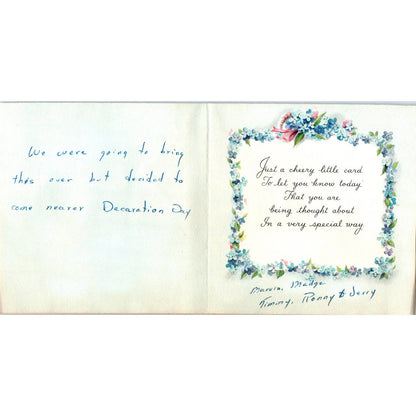 We were going to bring
this over but decided to
come nearer Decoration Day
Just a cheery little card
To let you know today
That you are
being thought about
In a very special way
Marvin, Madge
Timmy, Ronny & Jerry